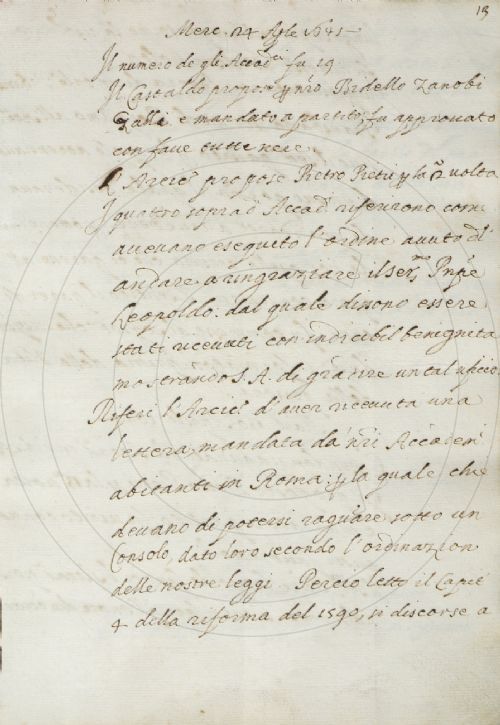 13
Merc. 24 Aple 1641
Il numero de gli Accad.ci fu 19
Il Castaldo propose p nrõ Bidello Zanobi
Galli e mandato a partito, fu approuato
con faue tutte nere.
L'Arcic.o propose Pietro Pieri p la p.a uolta
I quattro soprad. Accad. riferirono com
aueuano eseguito l'ordine auuto d'
andare a ringraziare il Ser.mo Pnpe
Leopoldo: dal quale dissono essere
stati riceuuti con indicibil benignita
mostrando S. A. di gradire un tal uficio.
Riferi l'Arcic.o d'auer riceuuta una
lettera, mandata da nri Accademi
abitanti in Roma: p la quale chie
deuano di potersi raguñare sotto un
Console, dato loro secondo l'ordinazion
delle nostre leggi. Percio letto il Capit
4 della riforma del 1590, si discorse a